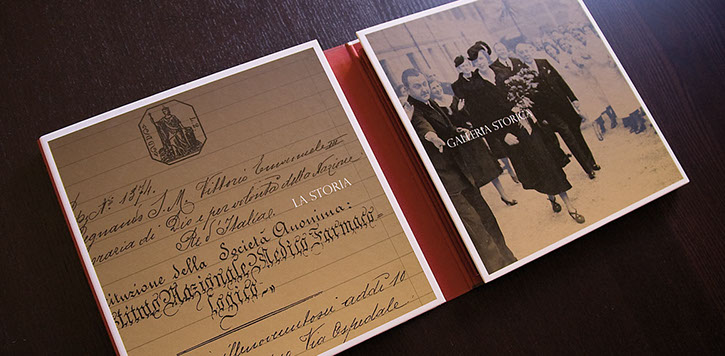 N.º 1374.
Regnando S. M. Vittorio Emanuele III
grazia di Dio e per volontà della Nazione
Re d'Italia.
LA STORIA
della Società Anonima:
Nazionale Medico Farmaco-
logico
addi 10
Via Ospedale
GALLERIA STORICA